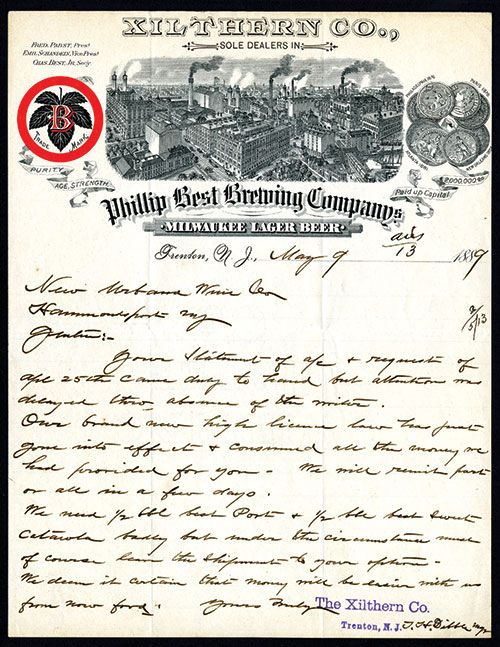 XILTHERN CO.,
SOLE DEALERS IN
FRED. PABST, Prest
EMIL SCHANDEIN, Vice Prest
CHAS. BEST, JR. Secy
B
TRADE MARK
PURITY
AGE, STRENGTH
Paid up Capital
2,000,000.00
Phillip Best Brewing Companys
MILWAUKEE LAGER BEER
Trenton, N. J., May 9 1889
ans
13
New Urbana Wine Co
Hammondsport NY
5/13
Gentm:-
Yours Statement of a/c & request of
Apl 25th came duly to hand but attention was
delayed thro absence of the writer.
Our brand new high license law has just
gone into effect & consumed all the money we
had provided for you - We will remit part
or all in a few days.
We need 1/2 bbl best Port & 1/2 bbl best Sweet
Catawba badly but under the circumstance must
of course leave the shipment to your option -
We deem it certain that money will be easier with us
from now ford. Yours Truly
The Xilthern Co.
Trenton, N. J. T. H. Dibble Mgr